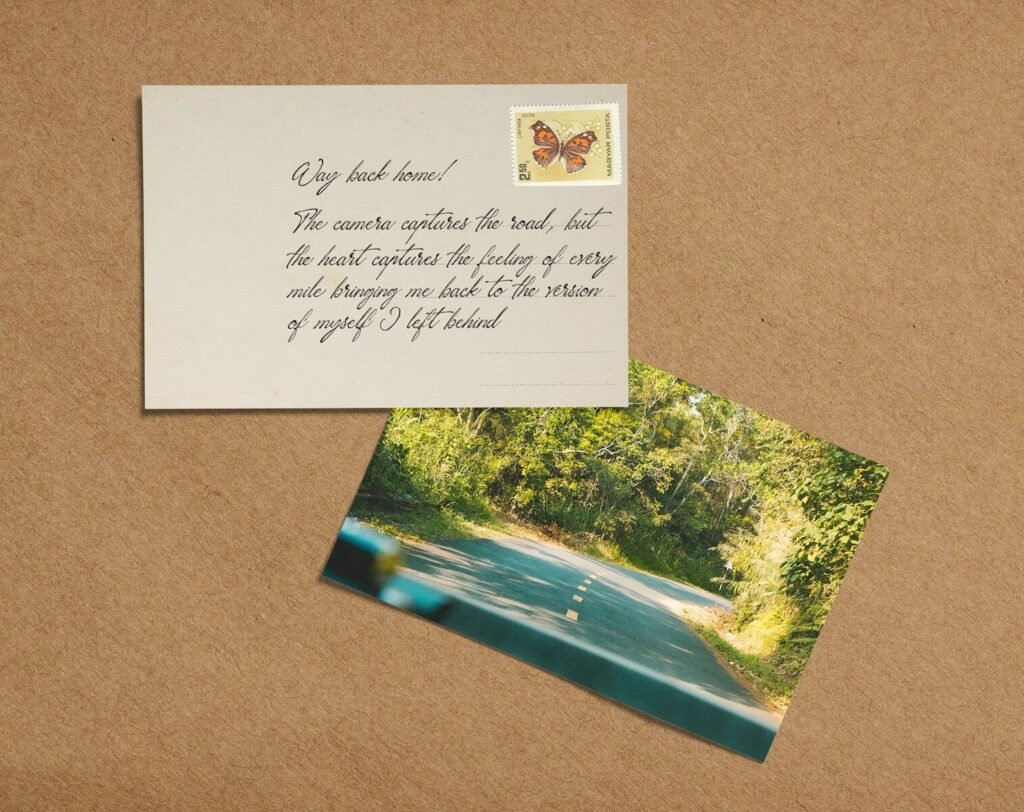 MAGYAR POSTA
2.50
Way back home!
The camera captures the road, but
the heart captures the feeling of every
mile bringing me back to the version
of myself I left behind